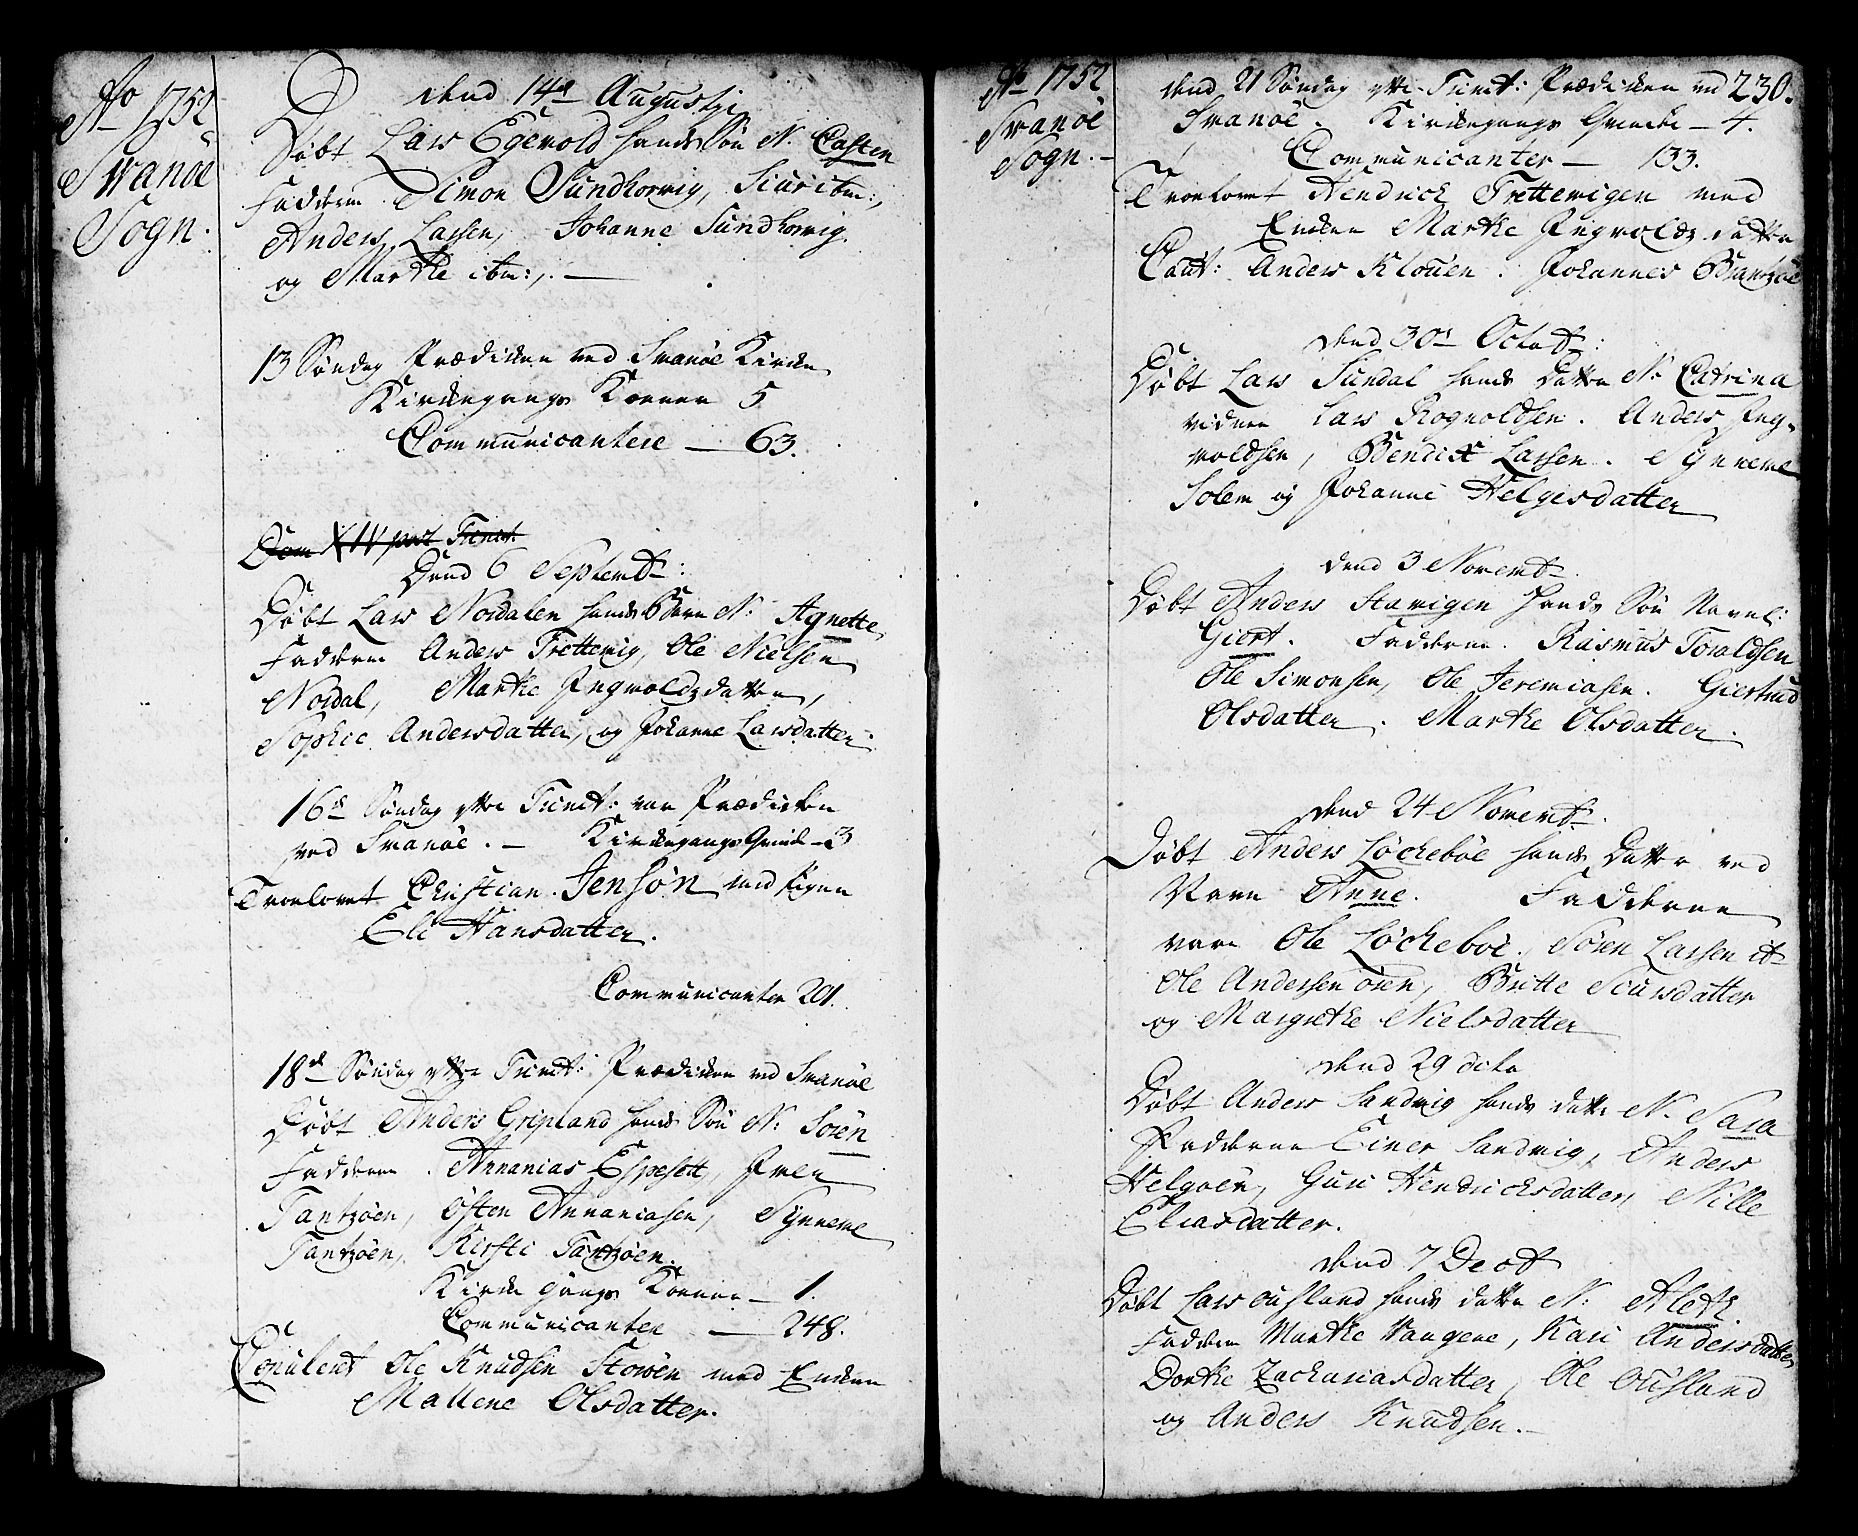 Ao 1752
Svanöe
Sogn.
dend 14de Augustj
Döbt Lars Egevold hands Sön N. Casten
Faddere Simon Sundhorvig, Siur ibm:,
Anders Larsen, Johanne Sundhorvig
og Marthe ibm:,. —
13 Söndag Prædiken ved Svanöe Kirke
Kirkegangs Konner 5
Communicantere — 63.
Dom XIV post Trinit.
Dend 6 Septembr:
Döbt Lars Nordalen hands Barn N: Agnette,
Faddere Anders Trettevig, Ole Nielsen
Nordal, Marthe Ingvoldsdatter,
Sophie Andersdatter, og Johanne Larsdatter.
16de Söndag efter Trinit: var Prædiken
ved Svanöe. — Kirkegangs Qvinde — 3
Troelovet Christian Jensön med Pigen
Eli Hansdatter.
Communicanter 201.
18de Söndag efter Trinit: Prædiken ved Svanöe
Döbt Anders Gripland hands Sön N: Sören
Faddere. Annanias Espesett, Iver
Tantzöen, Östen Annaniasen, Synneve
Tantzöen, Kirsti Tantzöen.
Kirke gangs Konner — 1.
Communicanter — 248.
Copuleret Ole Knudsen Storöen med Enken
Mallene Olsdatter.
Ao 1752
Svanöe
Sogn. —
dend 21 Söndag efter Trinit: Prædiken ved 230.
Svanöe. Kirkegangs Qvinder — 4.
Communicanter — 133.
Troelovet Hendrick Trettevigen med
Enken Marthe Ingvoldsdatter
Caut: Anders Klouen. Johannes Brantzöe
dend 30te Octobr:
Döbt Lars Sundal hands Datter N. Catrina
vidner Lars Rognoldsen. Anders Ing-
voldsen, Bendix Larsen. Synneve
Solem og Johanne Helgesdatter
dend 3 Novembr
Döbt Anders Stavigen hands Sön Navnl:
Giert. Faddere. Rasmus Toraldsen
Ole Simonsen, Ole Jeremiasen. Giertrud
Olsdatter. Marthe Olsdatter.
dend 24 Novembr.
Döbt Anders Löckeböe hands Datter ved
Navn Anne. Fadderne
vare Ole Löckeböe, Sören Larsen ib
Ole Andersen ören, Britte Siursdatter
og Margrethe Nielsdatter
dend 29 octo
Döbt Anders Sandvig hands datter N. Sara
Fadderne Einer Sandvig, Anders
Helgöen, Guri Hendricksdatter, Nille
Eliasdatter.
dend 7 Decbr
Döbt Lars ousland hands datter N: Aleth.
Faddere Marthe Vangene, Kari Andersdatter
Dorthe Zachariasdatter, Ole Ousland
og Anders Knudsen. —